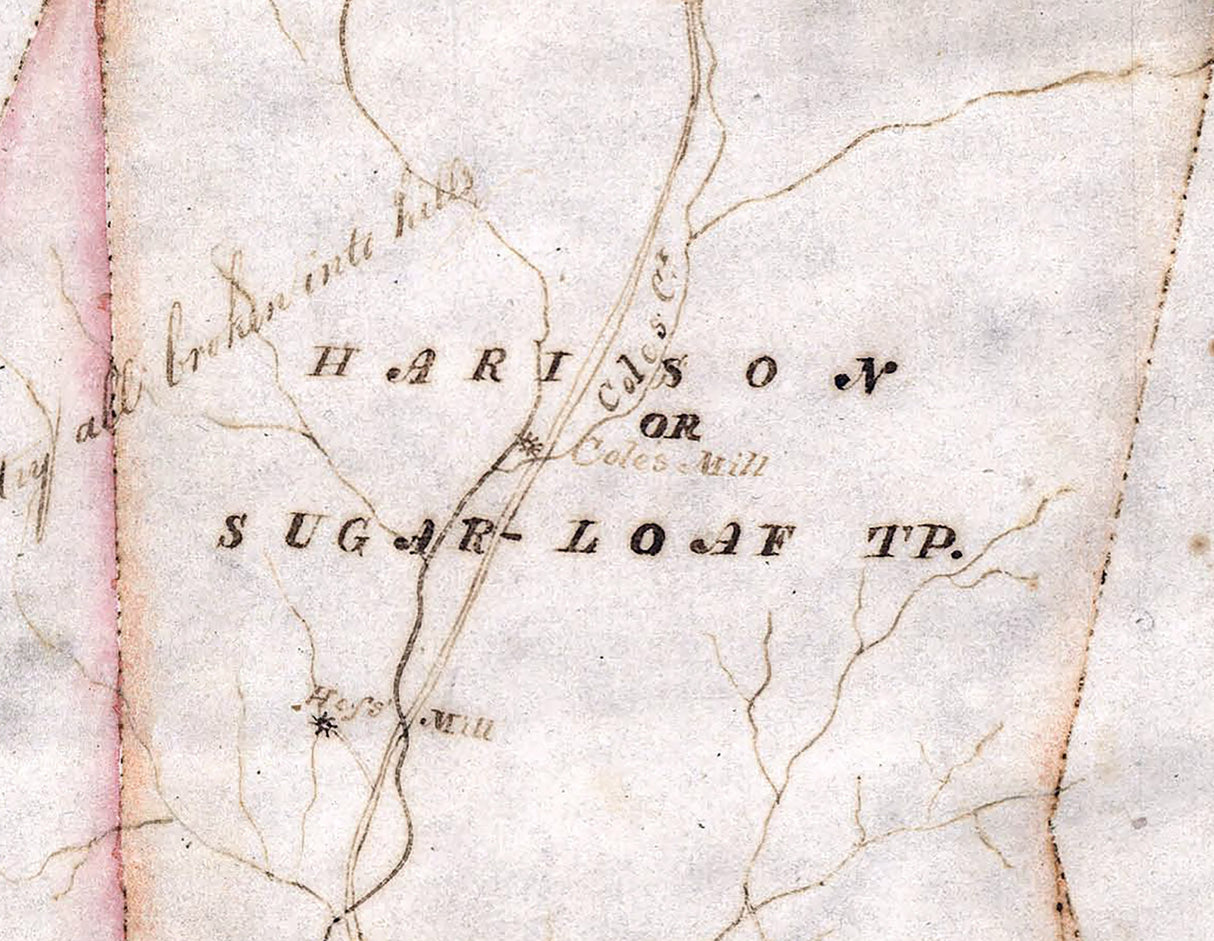 all broken into hills
HARISON
Coles Cr
OR
Coles Mill
SUGAR-LOAF TP.
Hess Mill